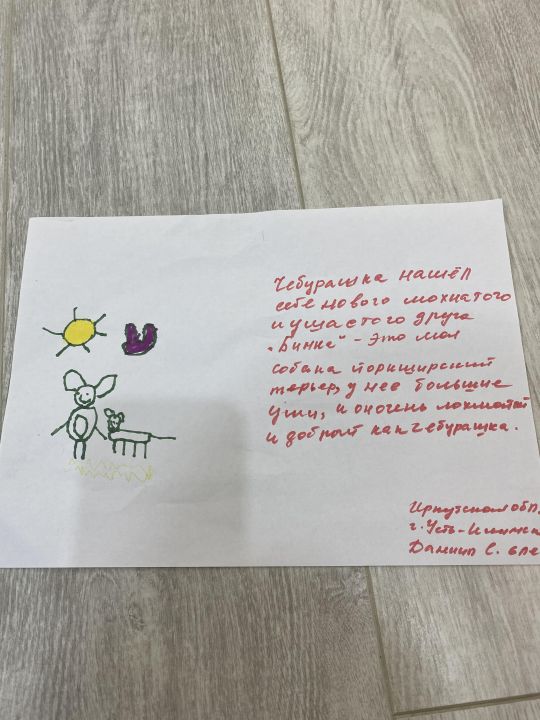 Чебурашка нашёл
себе нового мохнатого
и ушастого друга
„Бинке" - это моя
собака йоркширский
терьер, у нее большие
уши, и он очень лохматый
и добрый как чебурашка.
Иркутская обл.
г. Усть-Илимск
Даниил С. 6ле